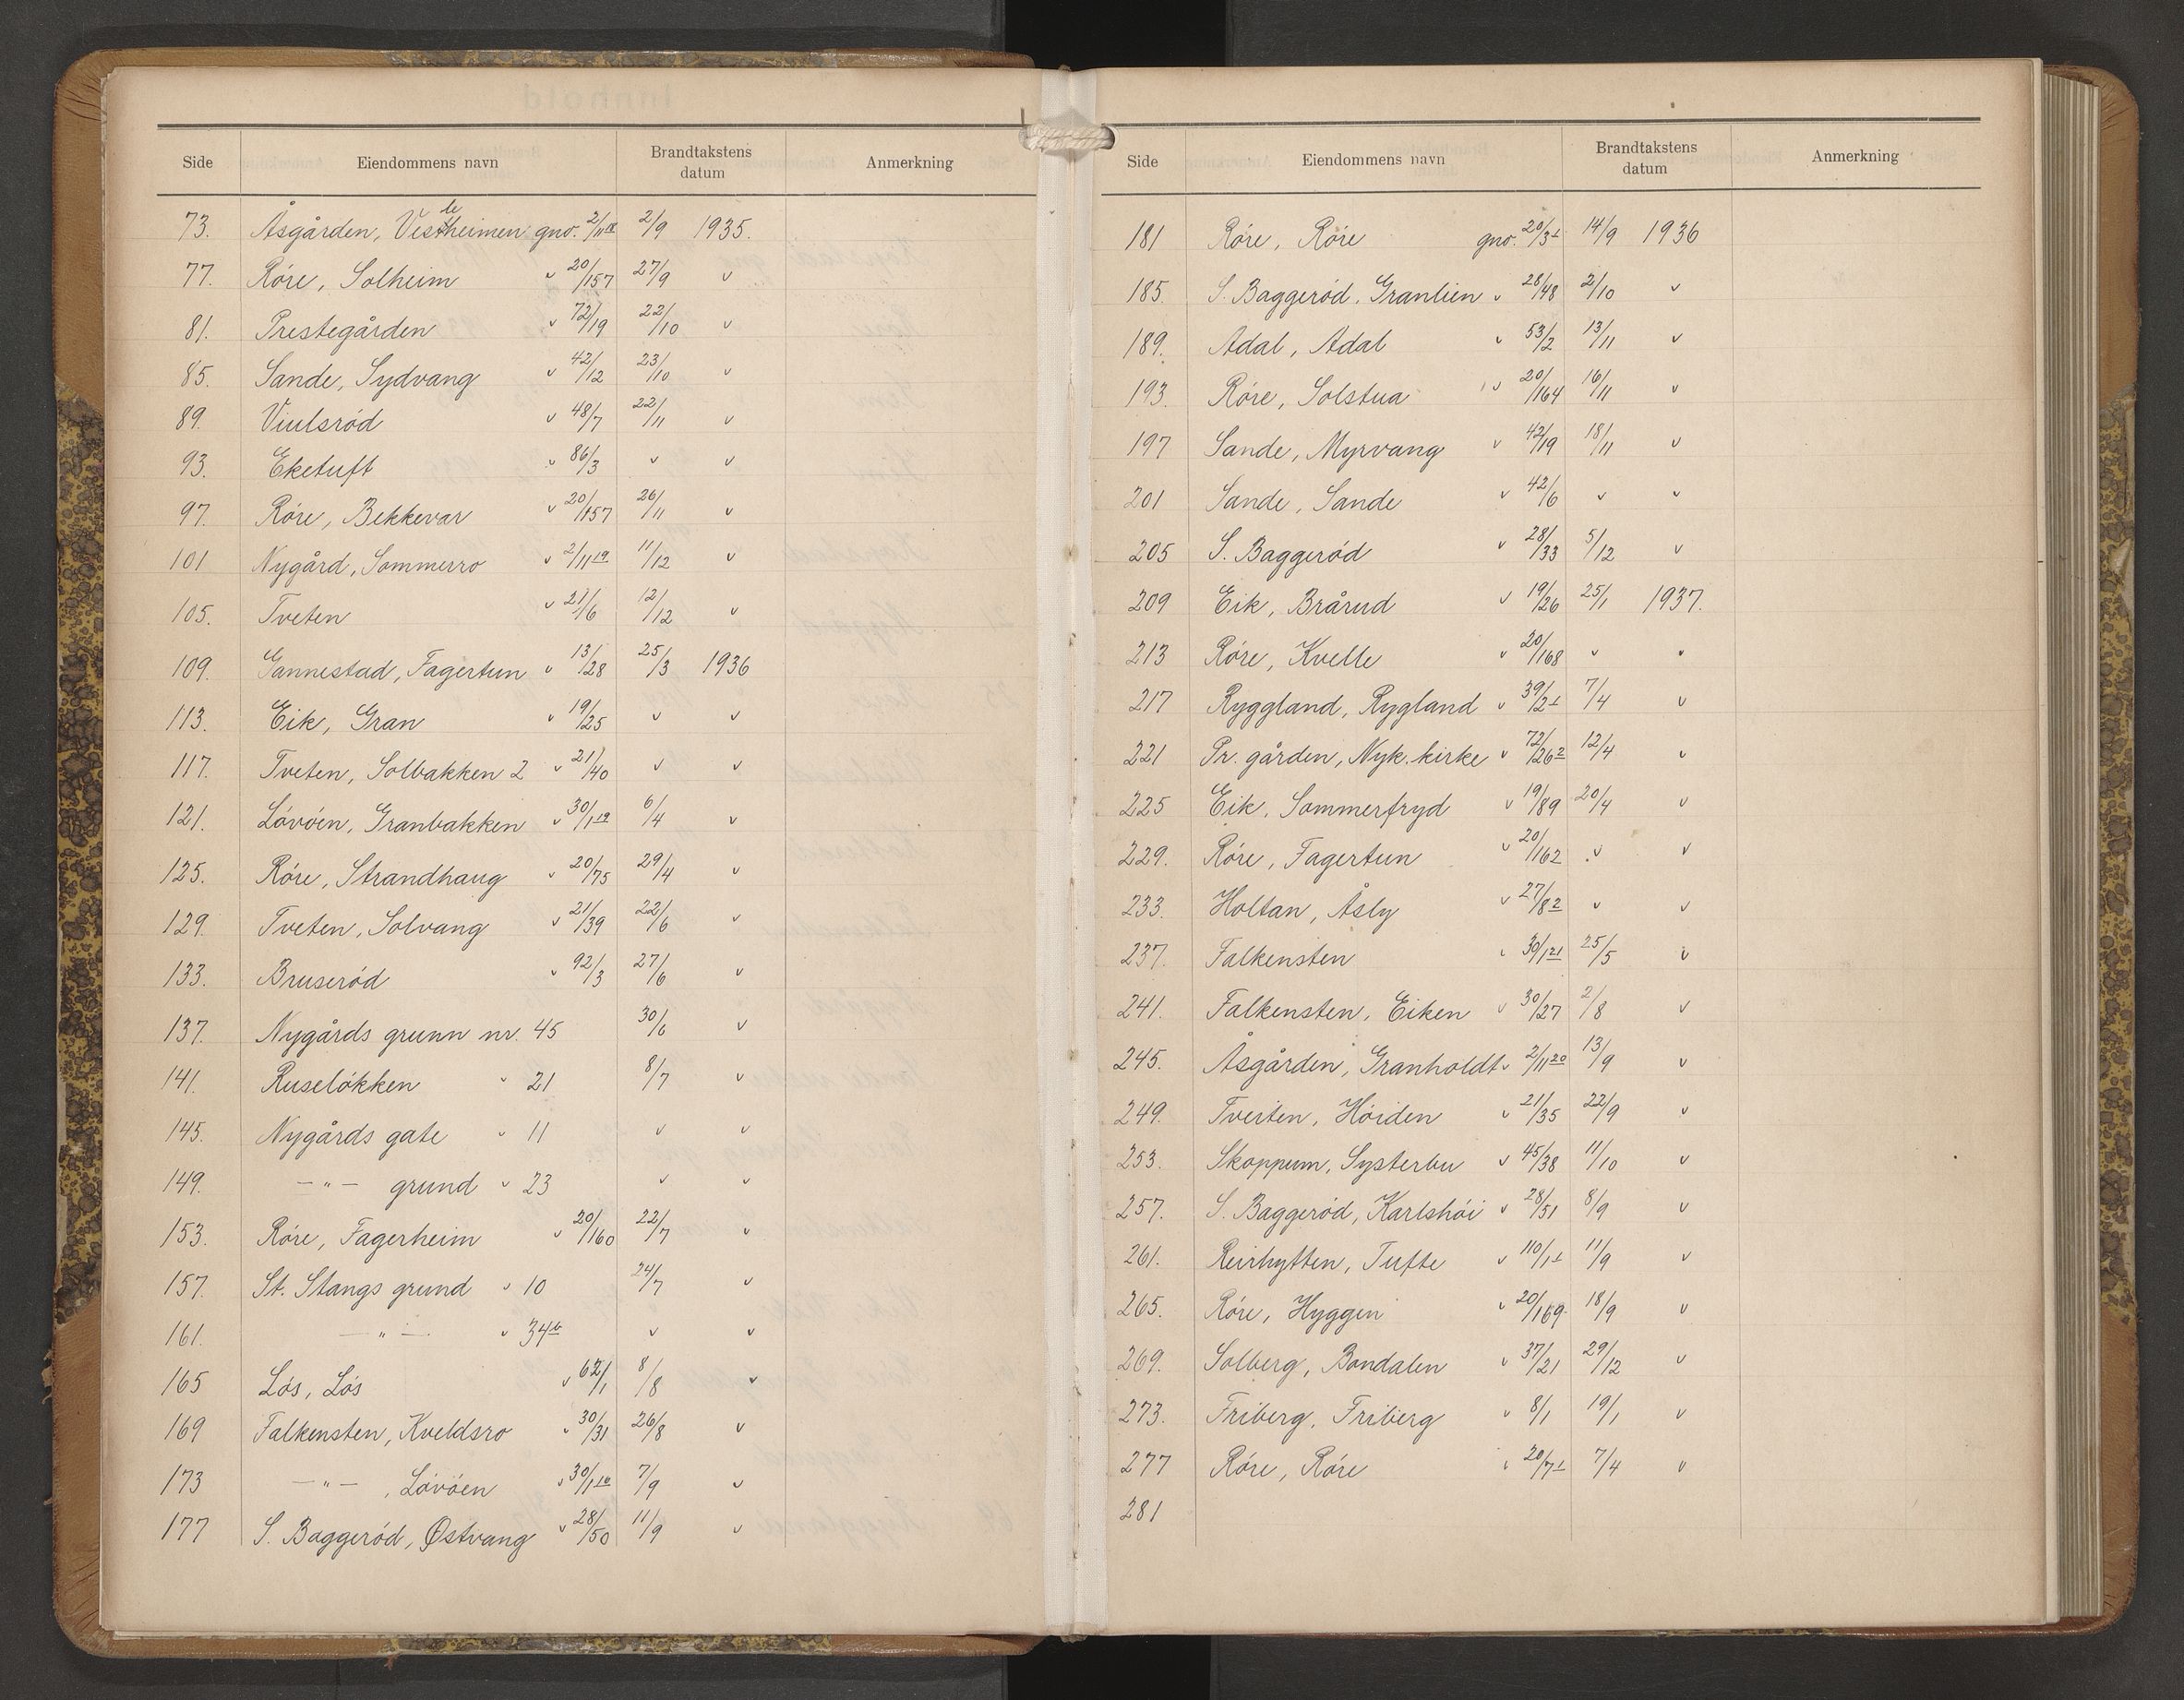 Side Eiendommens navn Brandtakstens datum Anmerkning
73. Åsgården, Vestleheimen gno. 2/11 18 2/9 1935.
77. Röre, Solheim " 20/157 27/9 "
81. Prestegården " 72/19 22/10 "
85. Sande, Sydvang " 42/12 23/10 "
89. Viulsröd " 48/7 22/11 "
93. Eketuft " 86/3 " "
97. Röre, Bekkevar " 20/157 26/11 "
101 Nygård, Sommerro " 2/11 19 11/12 "
105. Tveten " 21/6 12/12 "
109. Gannestad, Fagertun " 13/28 25/3 1936
113. Eik, Gran " 19/25 " "
117. Tveten, Solbakken 2 " 21/40 " "
121. Lövöen, Granbakken " 30/1 19 6/4 "
125. Röre, Strandhaug " 20/75 29/4 "
129. Tveten, Solvang " 21/39 22/6 "
133. Bruseröd " 92/3 27/6 "
137. Nygårds grunn nr. 45 30/6 "
141. Ruselökken " 21 8/7 "
145. Nygårds gate " 11 " "
149. -"- grund " 23 " "
153. Röre, Fagerheim " 20/160 22/7 "
157. St. Stangs grund " 10 24/7 "
161. -"- " 34b " "
165 Lös, Lös " 62/1 8/8 "
169 Falkensten, Kveldsro " 30/31 26/8 "
173 -"- , Lövöen " 30/1 16 7/9 "
177 S. Baggeröd, Østvang " 28/50 11/9 "
Side Eiendommens navn Brandtakstens datum Anmerkning
181 Röre, Röre gno. 20/3 1 14/9 1936
185. S. Baggeröd, Granlien " 28/48 2/10 "
189. Adal, Adal " 53/2 13/11 "
193. Röre, Solstua " 20/164 16/11 "
197 Sande, Myrvang " 42/19 18/11 "
201 Sande, Sande " 42/6 " "
205 S. Baggeröd " 28/33 5/12 "
209 Eik, Brårud " 19/26 25/1 1937.
213 Röre, Kvelle " 20/168 " "
217 Ryggland, Rygland " 39/2 1 7/4 "
221 Pr. gården, Nyk. kirke " 72/26 2 12/4 "
225 Eik, Sommerfryd " 19/89 20/4 "
229. Röre, Fagertun " 20/162 " "
233. Holtan, Åsly " 27/8 2 " "
237. Falkensten " 30/1 21 25/5 "
241. Falkensten, Eiken " 30/27 2/8 "
245. Åsgården, Granholdt " 2/11 20 13/9 "
249. Tveiten, Höiden " 21/35 22/9 "
253. Skoppum, Systerbu " 45/38 11/10 "
257. S. Baggeröd, Karlshöi " 28/51 8/9 "
261. Reirhytten, Tufte " 110/1 1 11/9 "
265. Röre, Hyggen " 20/169 18/9 "
269. Solberg, Bondalen " 37/21 29/12 "
273. Friberg, Friberg " 8/1 19/1 "
277 Röre, Röre " 20/7 1 7/4 "
281